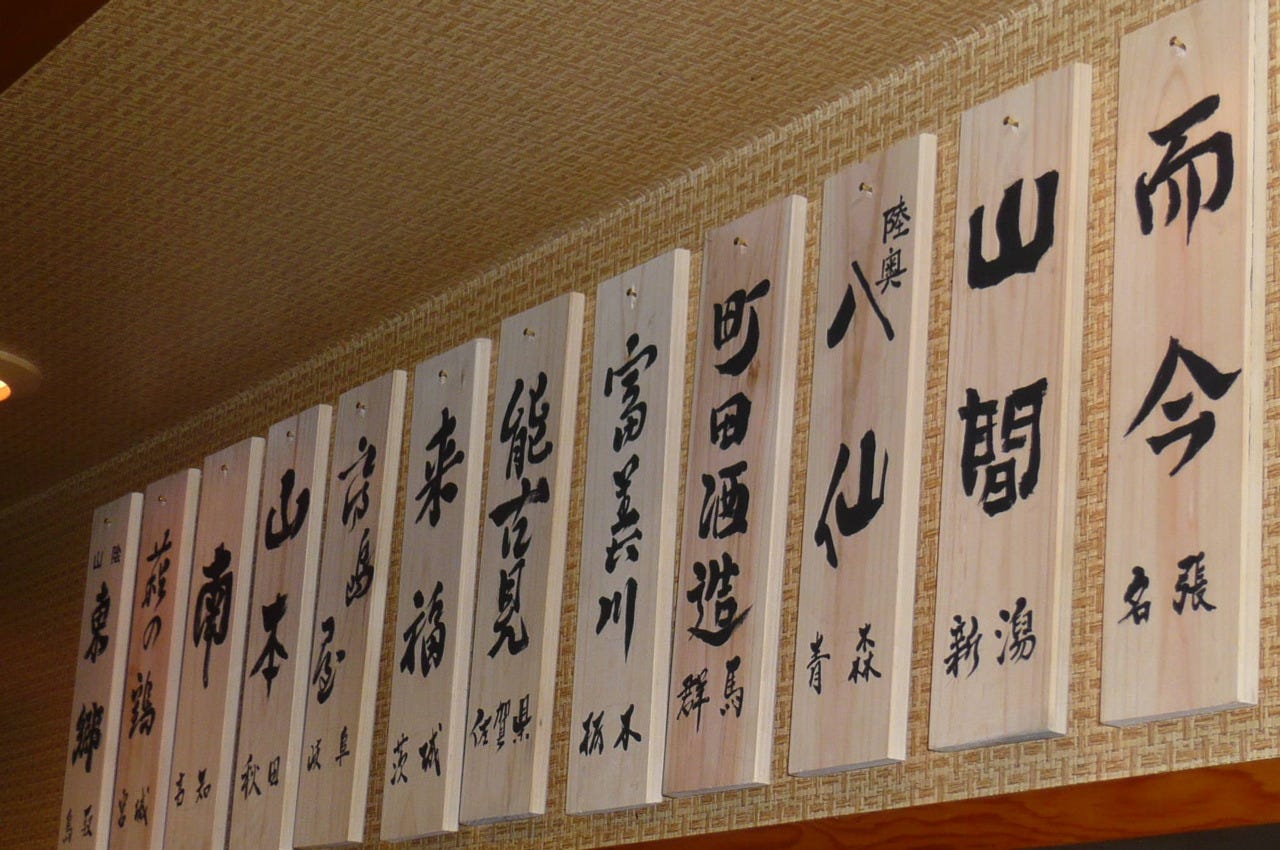 而今
名張
山間
新潟
陸奥
八仙
青森
町田酒造
群馬
富美川
栃木
能古見
佐賀県
来福
茨城
房島屋
岐阜
山本
秋田
南
高知
萩の鶴
宮城
山陰
東郷
鳥取